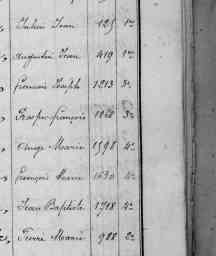 Julien Jean 125 1re
Augustin Jean 419 1re
François Joseph 1213 3e
Prosper françois 1068 3e
Ange Marie 1598 4e
François Marie 1630 4e
Jean Baptiste 1708 4e
Pierre Marie 988 2e